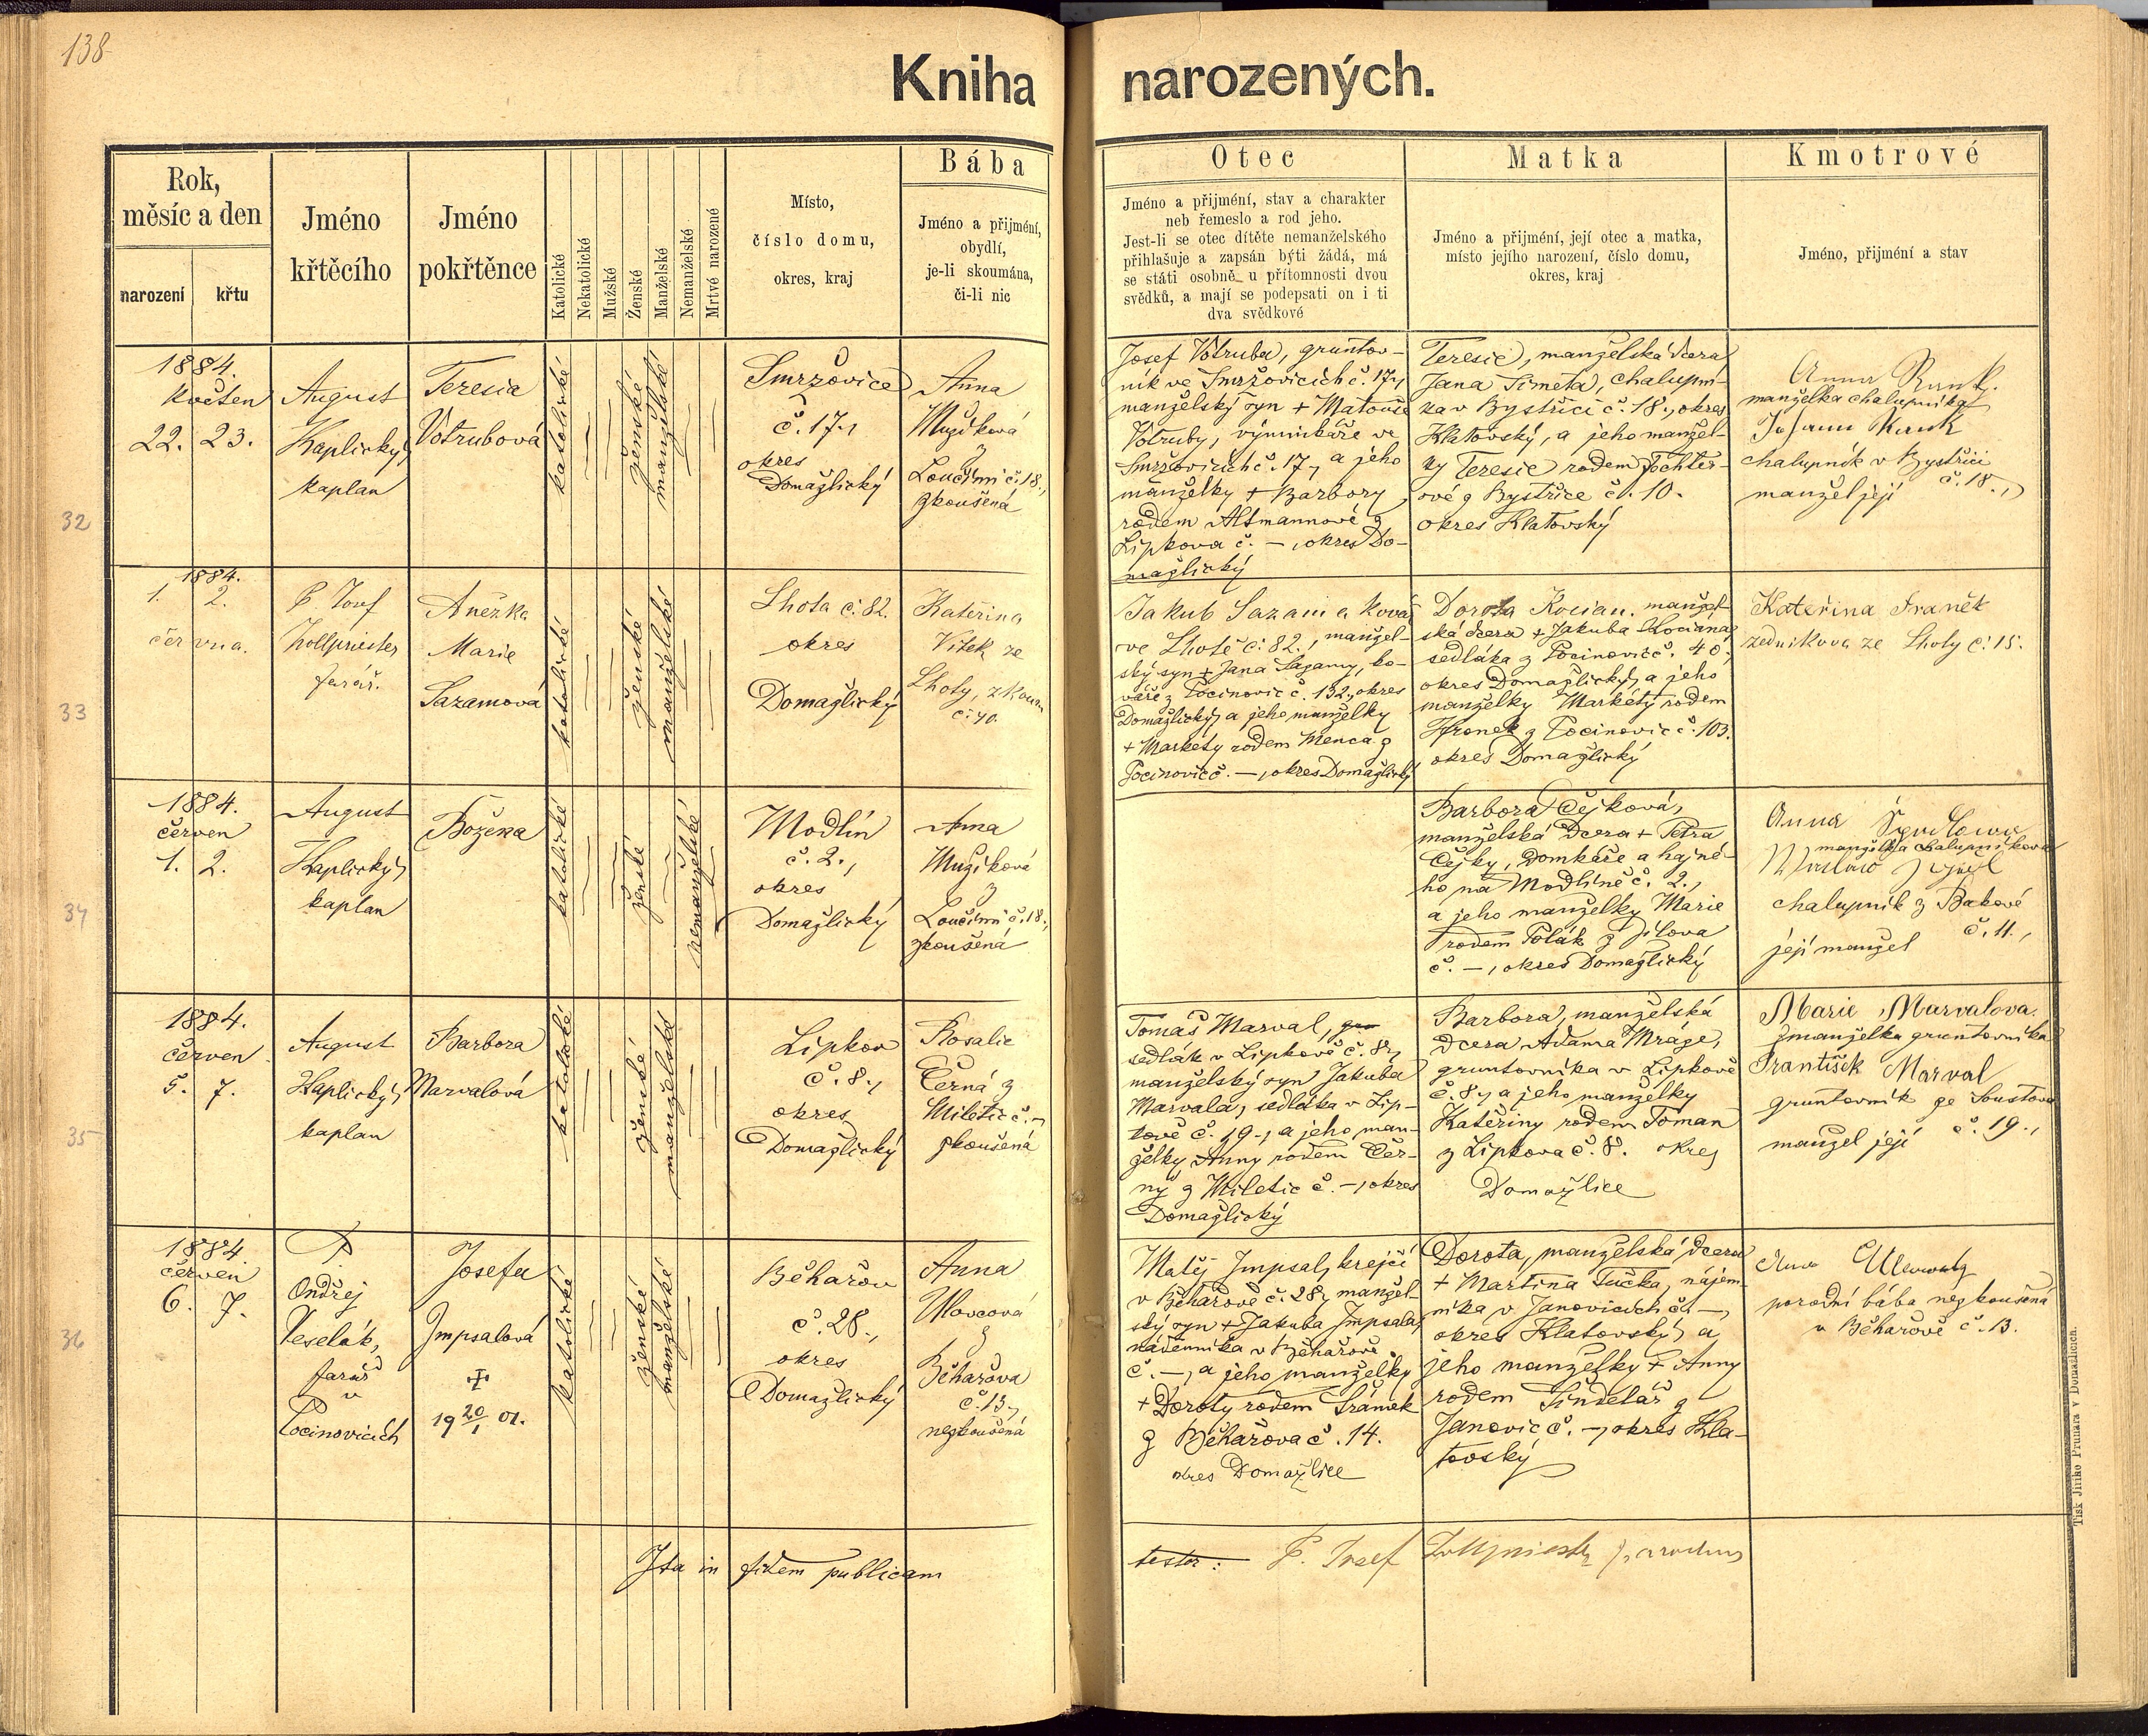 138
Kniha narozených.
Rok,
měsíc a den
narození
křtu
Jméno
křtěcího
Jméno
pokřtěnce
Katolické
Nekatolické
Mužské
Ženské
Manželské
Nemanželské
Mrtvé narozené
Místo,
číslo domu,
okres, kraj
Bába
Jméno a přijmění,
obydlí,
je-li skoumána,
či-li nic
Otec
Jméno a přijmění, stav a charakter
neb řemeslo a rod jeho.
Jest-li se otec dítěte nemanželského
přihlašuje a zapsán býti žádá, má
se státi osobně u přítomnosti dvou
svědků, a mají se podepsati on i ti
dva svědkové
Matka
Jméno a přijmění, její otec a matka,
místo jejího narození, číslo domu,
okres, kraj
Kmotrové
Jméno, přijmění a stav
32
1884.
Květen
22. 23.
August
Kaplický,
kaplan
Teresia
Votrubová
katolické
ženské
manželské
Smržovice
č. 17.,
okres
Domažlický
Anna
Mužíková
z
Loučimi č. 18.,
zkoušená
Josef Votruba, gruntov-
ník ve Smržovicích č. 17.,
manželský syn + Matouše
Votruby, výminkáře ve
Smržovicích č. 17., a jeho
manželky + Barbory,
rodem Altmannové z
Lipkova č. —, okres Do-
mažlický
Teresie, manželská dcera
Jana Simeta, chalupní-
ka v Bystřici č. 18., okres
Klatovský, a jeho manžel-
ky Teresie rodem Tochter-
ové z Bystřice č. 10.
okres Klatovský
Anna
manželka chalupníka
chalupník v Bystřici
č. 18.,
manžel její
33
1884.
1. 2.
června.
P. Josef
Zollpriester
farář.
Anežka
Marie
Sazamová
katolické
ženské
manželské
Lhota č. 82.
okres
Domažlický
Kateřina
Vítek ze
Lhoty, zkouš
č. 40.
Jakub Sazama kovář
ve Lhotě č. 82., manžel-
ský syn + Jana Sazamy, ko-
váře z Pocinovic č. 132., okres
Domažlický, a jeho manželky
+ Markéty rodem Menca z
Pocinovic č. —, okres Domažlický
Dorota Kocian. manžel-
ská dcera + Jakuba Kociána,
sedláka z Pocinovic č. 40.,
okres Domažlický, a jeho
manželky Markéty rodem
Hronek z Pocinovic č. 103.
okres Domažlický
Kateřina Franěk
zedníkova ze Lhoty č. 15.
34
1884.
červen
1. 2.
August
Kaplický,
kaplan
Božena
katolické
ženské
nemanželské
Modlín
č. 2.,
okres
Domažlický
Anna
Mužíková
z
Loučimi č. 18.,
zkoušená
Barbora Čejková,
manželská dcera + Petra
Čejky, domkáře a hajné-
ho na Modlíně č. 2.,
a jeho manželky Marie
rodem Polák z Jílova
č. —, okres Domažlický
Anna
manželka chalupníkova
chalupník z Bakové
č. 11.,
její manžel
35
1884.
červen
5. 7.
August
Kaplický,
kaplan
Barbora
Marvalová
katolické
ženské
manželské
Lipkov
č. 8.,
okres
Domažlický
Rosalie
Černá z
Miletic č. —,
zkoušená
Tomáš Marval,
sedlák v Lipkově č. 8.,
manželský syn Jakuba
Marvala, sedláka v Lip-
kově č. 19., a jeho man-
želky Anny rodem Čer-
ný z Miletic č. —, okres
Domažlický
Barbora, manželská
dcera Adama Mráze,
gruntovníka v Lipkově
č. 8., a jeho manželky
Kateřiny rodem Toman
z Lipkova č. 8. okres
Domažlice
Marie Marvalova.
manželka gruntovníka
František Marval
gruntovník ze Soustova
č. 19.,
manžel její
36
1884.
červen
6. 7.
P.
Ondřej
Veselák,
farář
v
Pocinovicích
Josefa
Jmpsalová
+
19 20/1 01.
katolické
ženské
manželské
Běhařov
č. 28.,
okres
Domažlický
Anna
Ulovcová
z
Běhařova
č. 13.,
nezkoušená
Matěj Jmpsal, krejčí
v Běhařově č. 28., manžel-
ský syn + Jakuba Jmpsala,
nádenníka v Běhařově
č. —, a jeho manželky
+ Doroty rodem Šrámek
z Běhařova č. 14.
okres Domažlice
Dorota, manželská dcera
+ Martina Tučka, nájem-
níka v Janovicích č. —,
okres Klatovský, a
jeho manželky + Anny
rodem Šindelář z
Janovic č. —, okres Kla-
tovský
porodní bába nezkoušená
v Běhařově č. 13.
Ita in fidem publicam
testor: P. Josef Zollpriester parochus
Tisk Jiřího Prunara v Domažlicích.